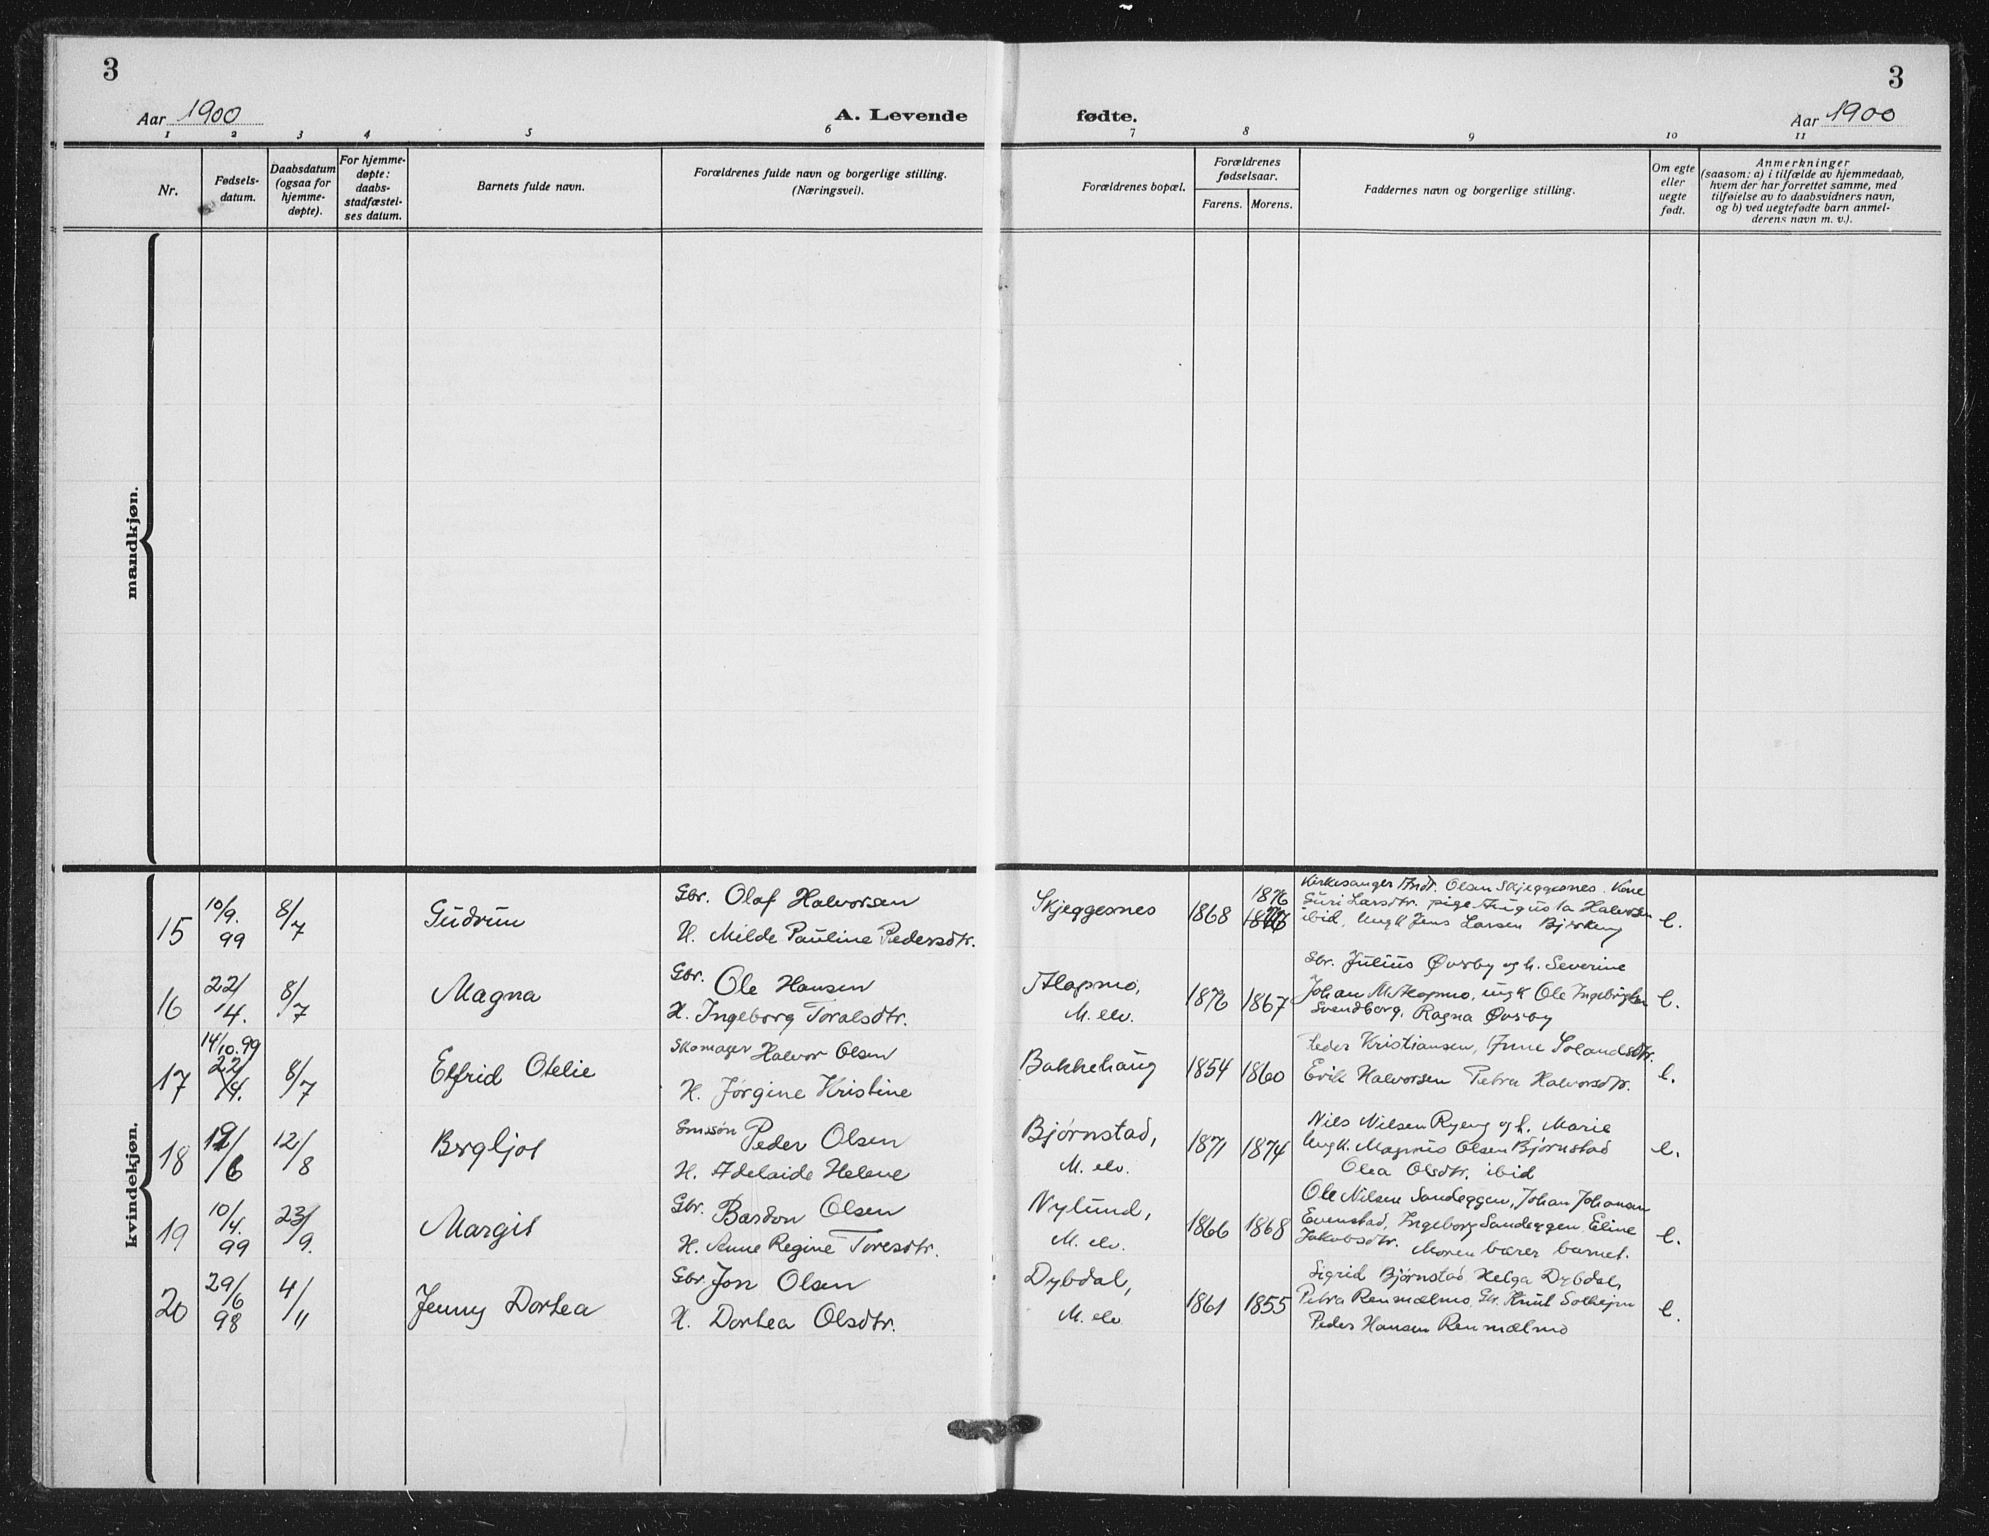 3
Aar 1900
A. Levende
1 2 3 4 5 6
Nr.
Fødsels-
datum.
Daabsdatum
(ogsaa for
hjemme-
døpte).
For hjemme-
døpte:
daabs-
stadfæstel-
ses datum.
Barnets fulde navn.
Forældrenes fulde navn og borgerlige stilling.
(Næringsvei).
mandkjøn.
kvindekjøn.
15 10/9. 99 8/7 Gudrun
Gbr. Olaf Halvorsen
H. Milde Pauline Pedersdtr.
16 22/4. 8/7 Magna
Gbr. Ole Hansen
H. Ingeborg Toralsdtr.
17 14/10.99 22/4. 8/7 Elfrid Otelie
Skomager Halvor Olsen
H. Jørgine Kristine
18 12/8 Bergljot
Peder Olsen
H. Adelaide Helene
19 10/4. 99 23/9. Margit
Gbr. Bardon Olsen
H. Anne Regine Toresdtr.
20 29/6 98 4/11 Jenny Dortea
Gbr. Jon Olsen
H. Dortea Olsdtr.
3
fødte.
Aar 1900
7 8 9 10 11
Forældrenes bopæl.
Forældrenes
fødselsaar.
Farens. Morens.
Faddernes navn og borgerlige stilling.
Om egte
eller
uegte
født.
Anmerkninger
(saasom: a) i tilfælde av hjemmedaab,
hvem der har forrettet samme, med
tilføielse av to daabsvidners navn,
og b) ved uegtefødte barn anmel-
derens navn m. v.).
Skjeggesnes 1868 1876
Kirkesanger Andr. Olsen Skjeggesnes. Kone
Guri Larsdtr. pige Augusta Halvorsen
ibid, ungk Jens Larsen e.
Alapmo,
M. elv. 1876 1867
Gbr. Julius Øvrby og h. Severine
Johan M. Alapmo, ungk Ole
Svendborg, Ragna Øvrby e.
Bakkehaug 1854 1860
Peder Kristiansen,
Erik Halvorsen Petra Halvorsdtr. e.
Bjørnstad,
M. elv. 1871 1874
Nils Nilsen Ryeng og h. Marie
Ungk. Magnus Olsen Bjørnstad
Olea Olsdtr. ibid e.
Nylund,
M. elv. 1866 1868
Ole Nilsen Sandeggen, Johan Johansen
Evenstad, Ingeborg Sandeggen Eline
Jakobsdtr. Moren bærer barnet. e.
Dybdal,
M. elv 1861 1855
Sigrid Bjørnstad, Helga Dybdal,
Petra Renmælmo, Gbr. Knut Solheim
Peder Hansen Renmælmo e.